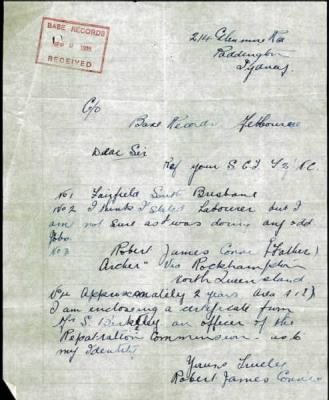 BASE RECORDS
RECEIVED
214 Glenmore Rd
Paddington
Sydney
C/o
Base Records Melbourne
Dear Sir
Ref your
No 1 Fairfield South Brisbane
No 2 I think I stated Labourer but I
am not sure as I was doing any odd
Jobs.
No 3 Robert James Connor (Father)
"Archer" via Rockhampton
North Queensland
Approximately 2 years
I am enclosing a certificate from
Mr S. Berkeley an officer of the
Repatration Commission as to
my Identity
Yours Truely
Robert James Connor